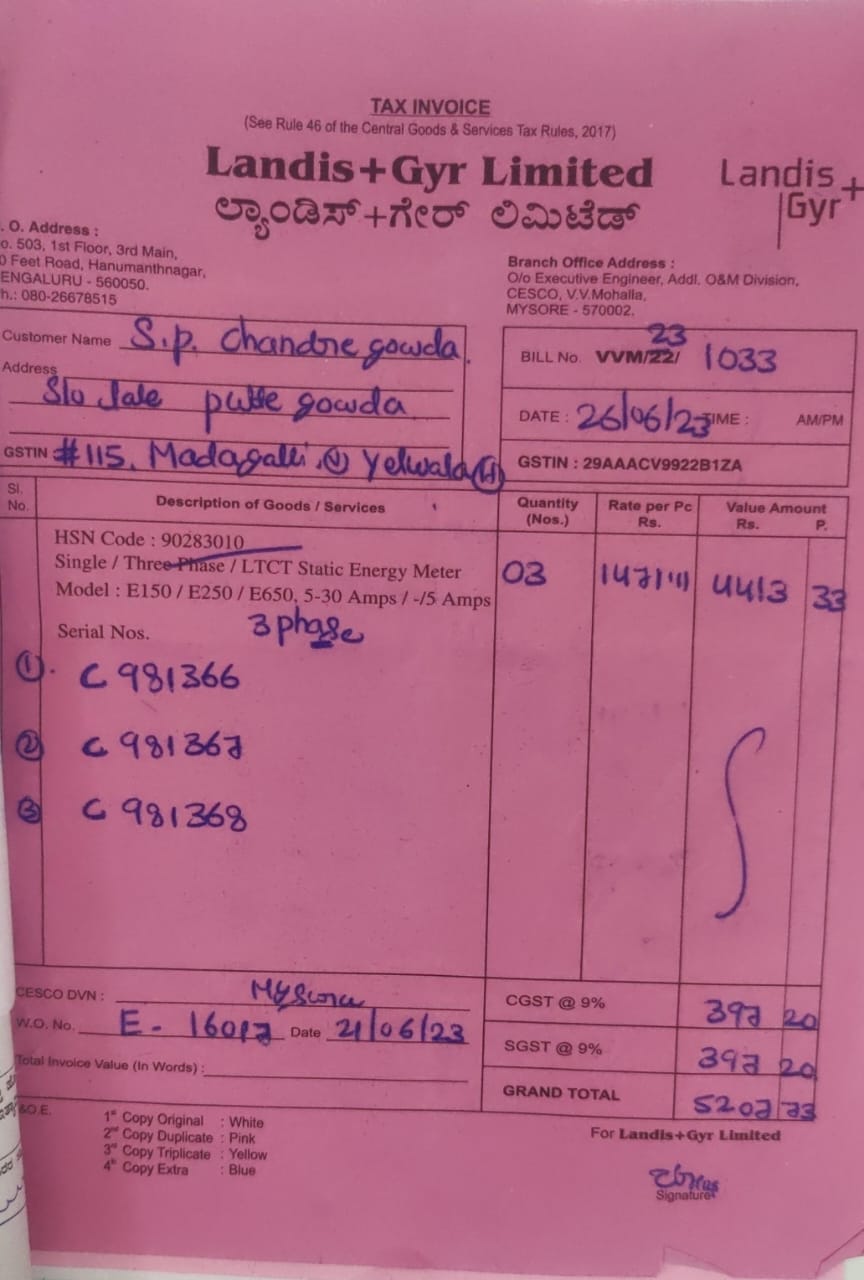 TAX INVOICE
(See Rule 46 of the Central Goods & Services Tax Rules, 2017)
Landis+Gyr Limited
ಲ್ಯಾಂಡಿಸ್+ಗೇರ್ ಲಿಮಿಟೆಡ್
Landis+
Gyr
. O. Address :
o. 503, 1st Floor, 3rd Main,
0 Feet Road, Hanumanthnagar,
ENGALURU - 560050.
h.: 080-26678515
Branch Office Address :
O/o Executive Engineer, Addl. O&M Division,
CESCO, V.V.Mohalla,
MYSORE - 570002.
Customer Name S.P. Chandre gowda.
Address
S/o Late putte gowda
GSTIN #115, Madagalli, (V) Yelwala (H)
23
BILL No. VVM/22/ 1033
DATE : 26/06/23 TIME : AM/PM
GSTIN : 29AAACV9922B1ZA
Sl. No. Description of Goods / Services Quantity (Nos.) Rate per Pc Rs. Value Amount Rs. P.
HSN Code : 90283010
Single / Three Phase / LTCT Static Energy Meter 03 1471.11 4413 33
Model : E150 / E250 / E650, 5-30 Amps / -/5 Amps
Serial Nos. 3 phase
1. C 981366
2 C 981367
3 C 981368
CESCO DVN : Mysore
W.O. No. E - 16017 Date 21/06/23
Total Invoice Value (In Words) :
CGST @ 9% 397 20
SGST @ 9% 397 20
GRAND TOTAL 5207 73
&O.E.
1st Copy Original : White
2nd Copy Duplicate : Pink
3rd Copy Triplicate : Yellow
4th Copy Extra : Blue
For Landis+Gyr Limited
Signature